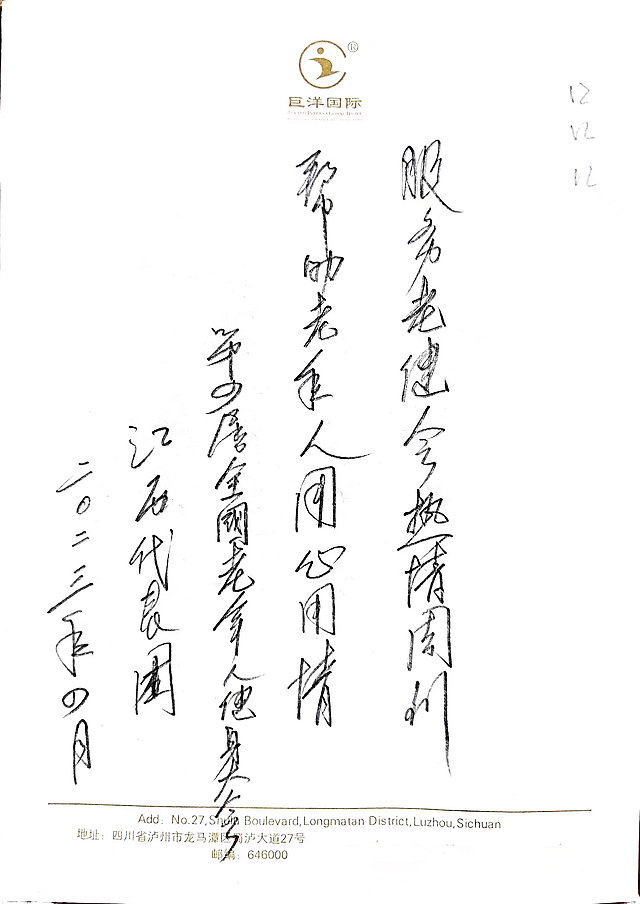 巨洋国际
12
12
12
服务老健会热情周到
帮助老年人用心用情
第四届全國老年人健身大会
江西代表团
二〇二三年四月
Add: No.27, Shulu Boulevard, Longmatan District, Luzhou, Sichuan
地址：四川省泸州市龙马潭区蜀泸大道27号
邮编：646000